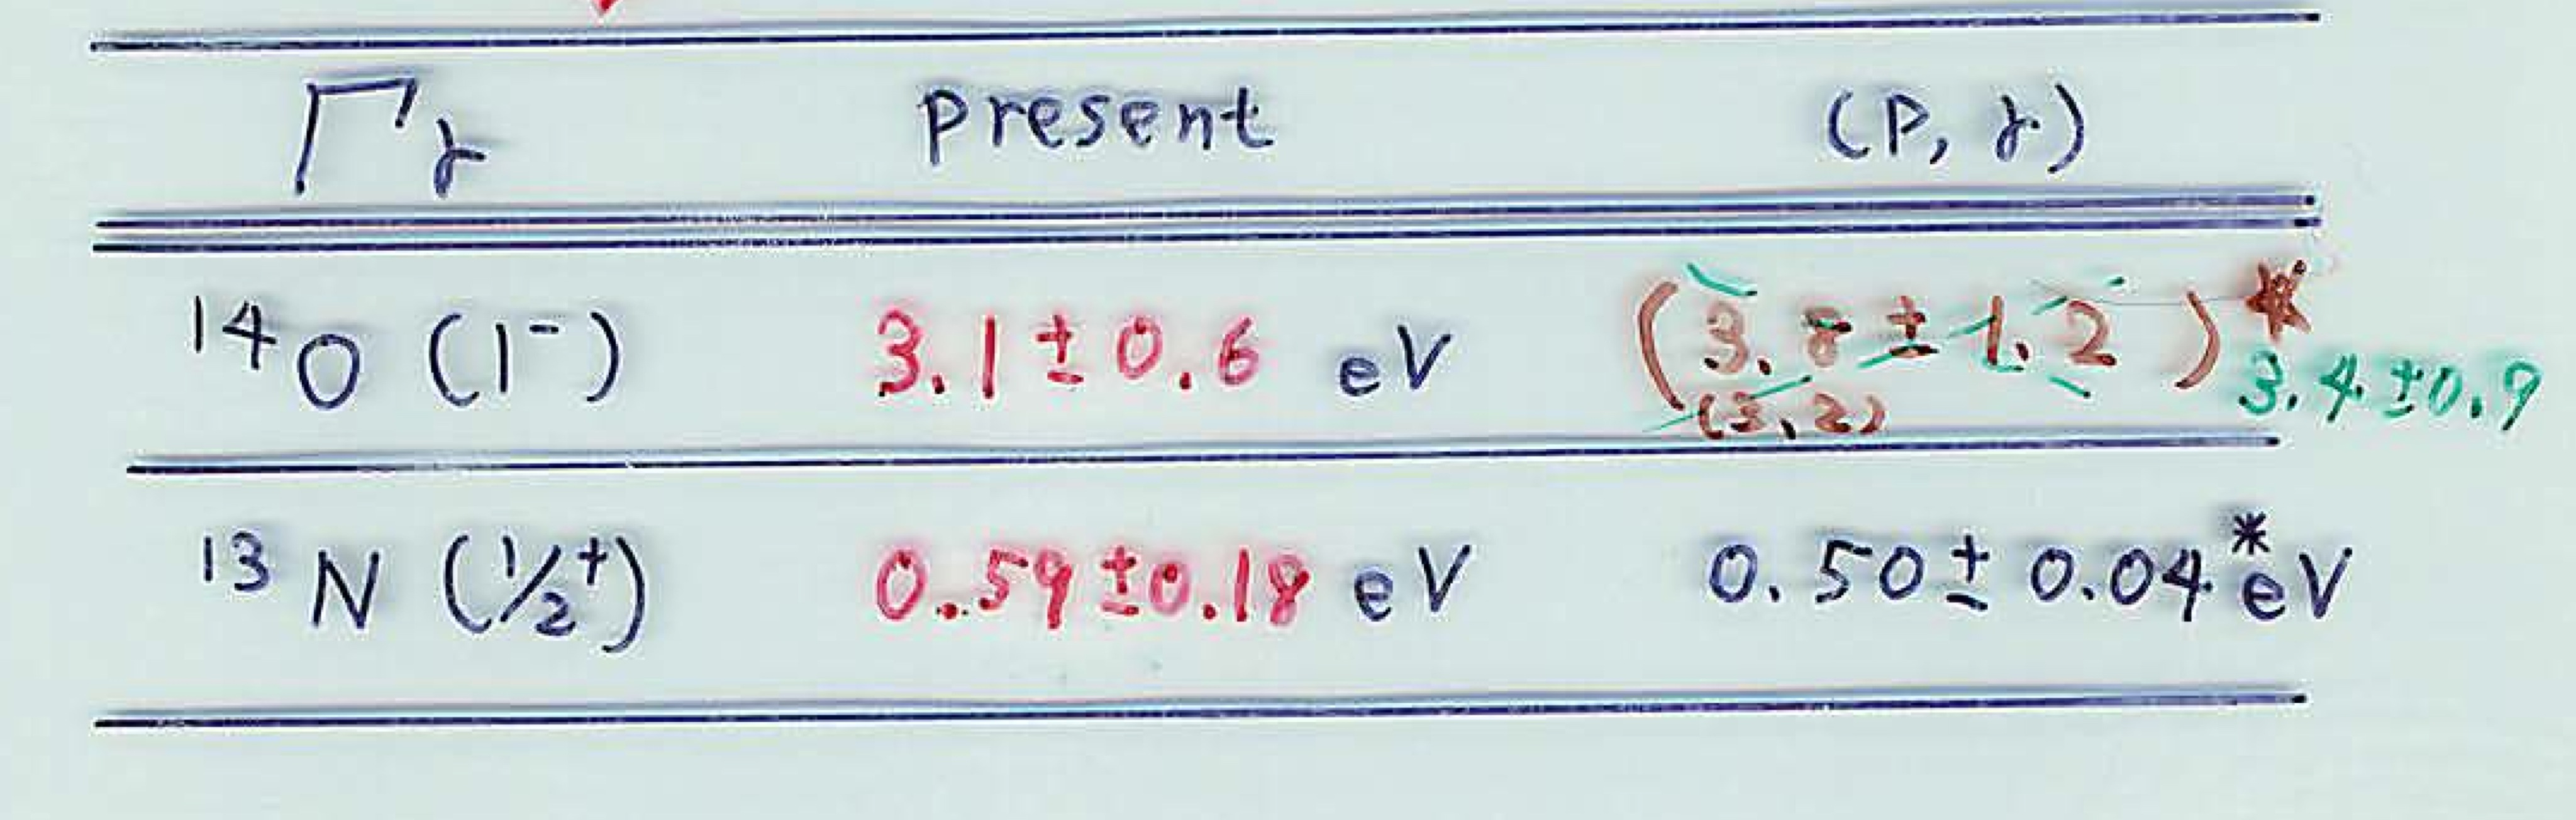 Γγ present (P, γ)
¹⁴O (1⁻) 3.1 ± 0.6 eV (3.8 ± 1.2)★ 3.4 ± 0.9
(3.2)
¹³N (½⁺) 0.59 ± 0.18 eV 0.50 ± 0.04* eV